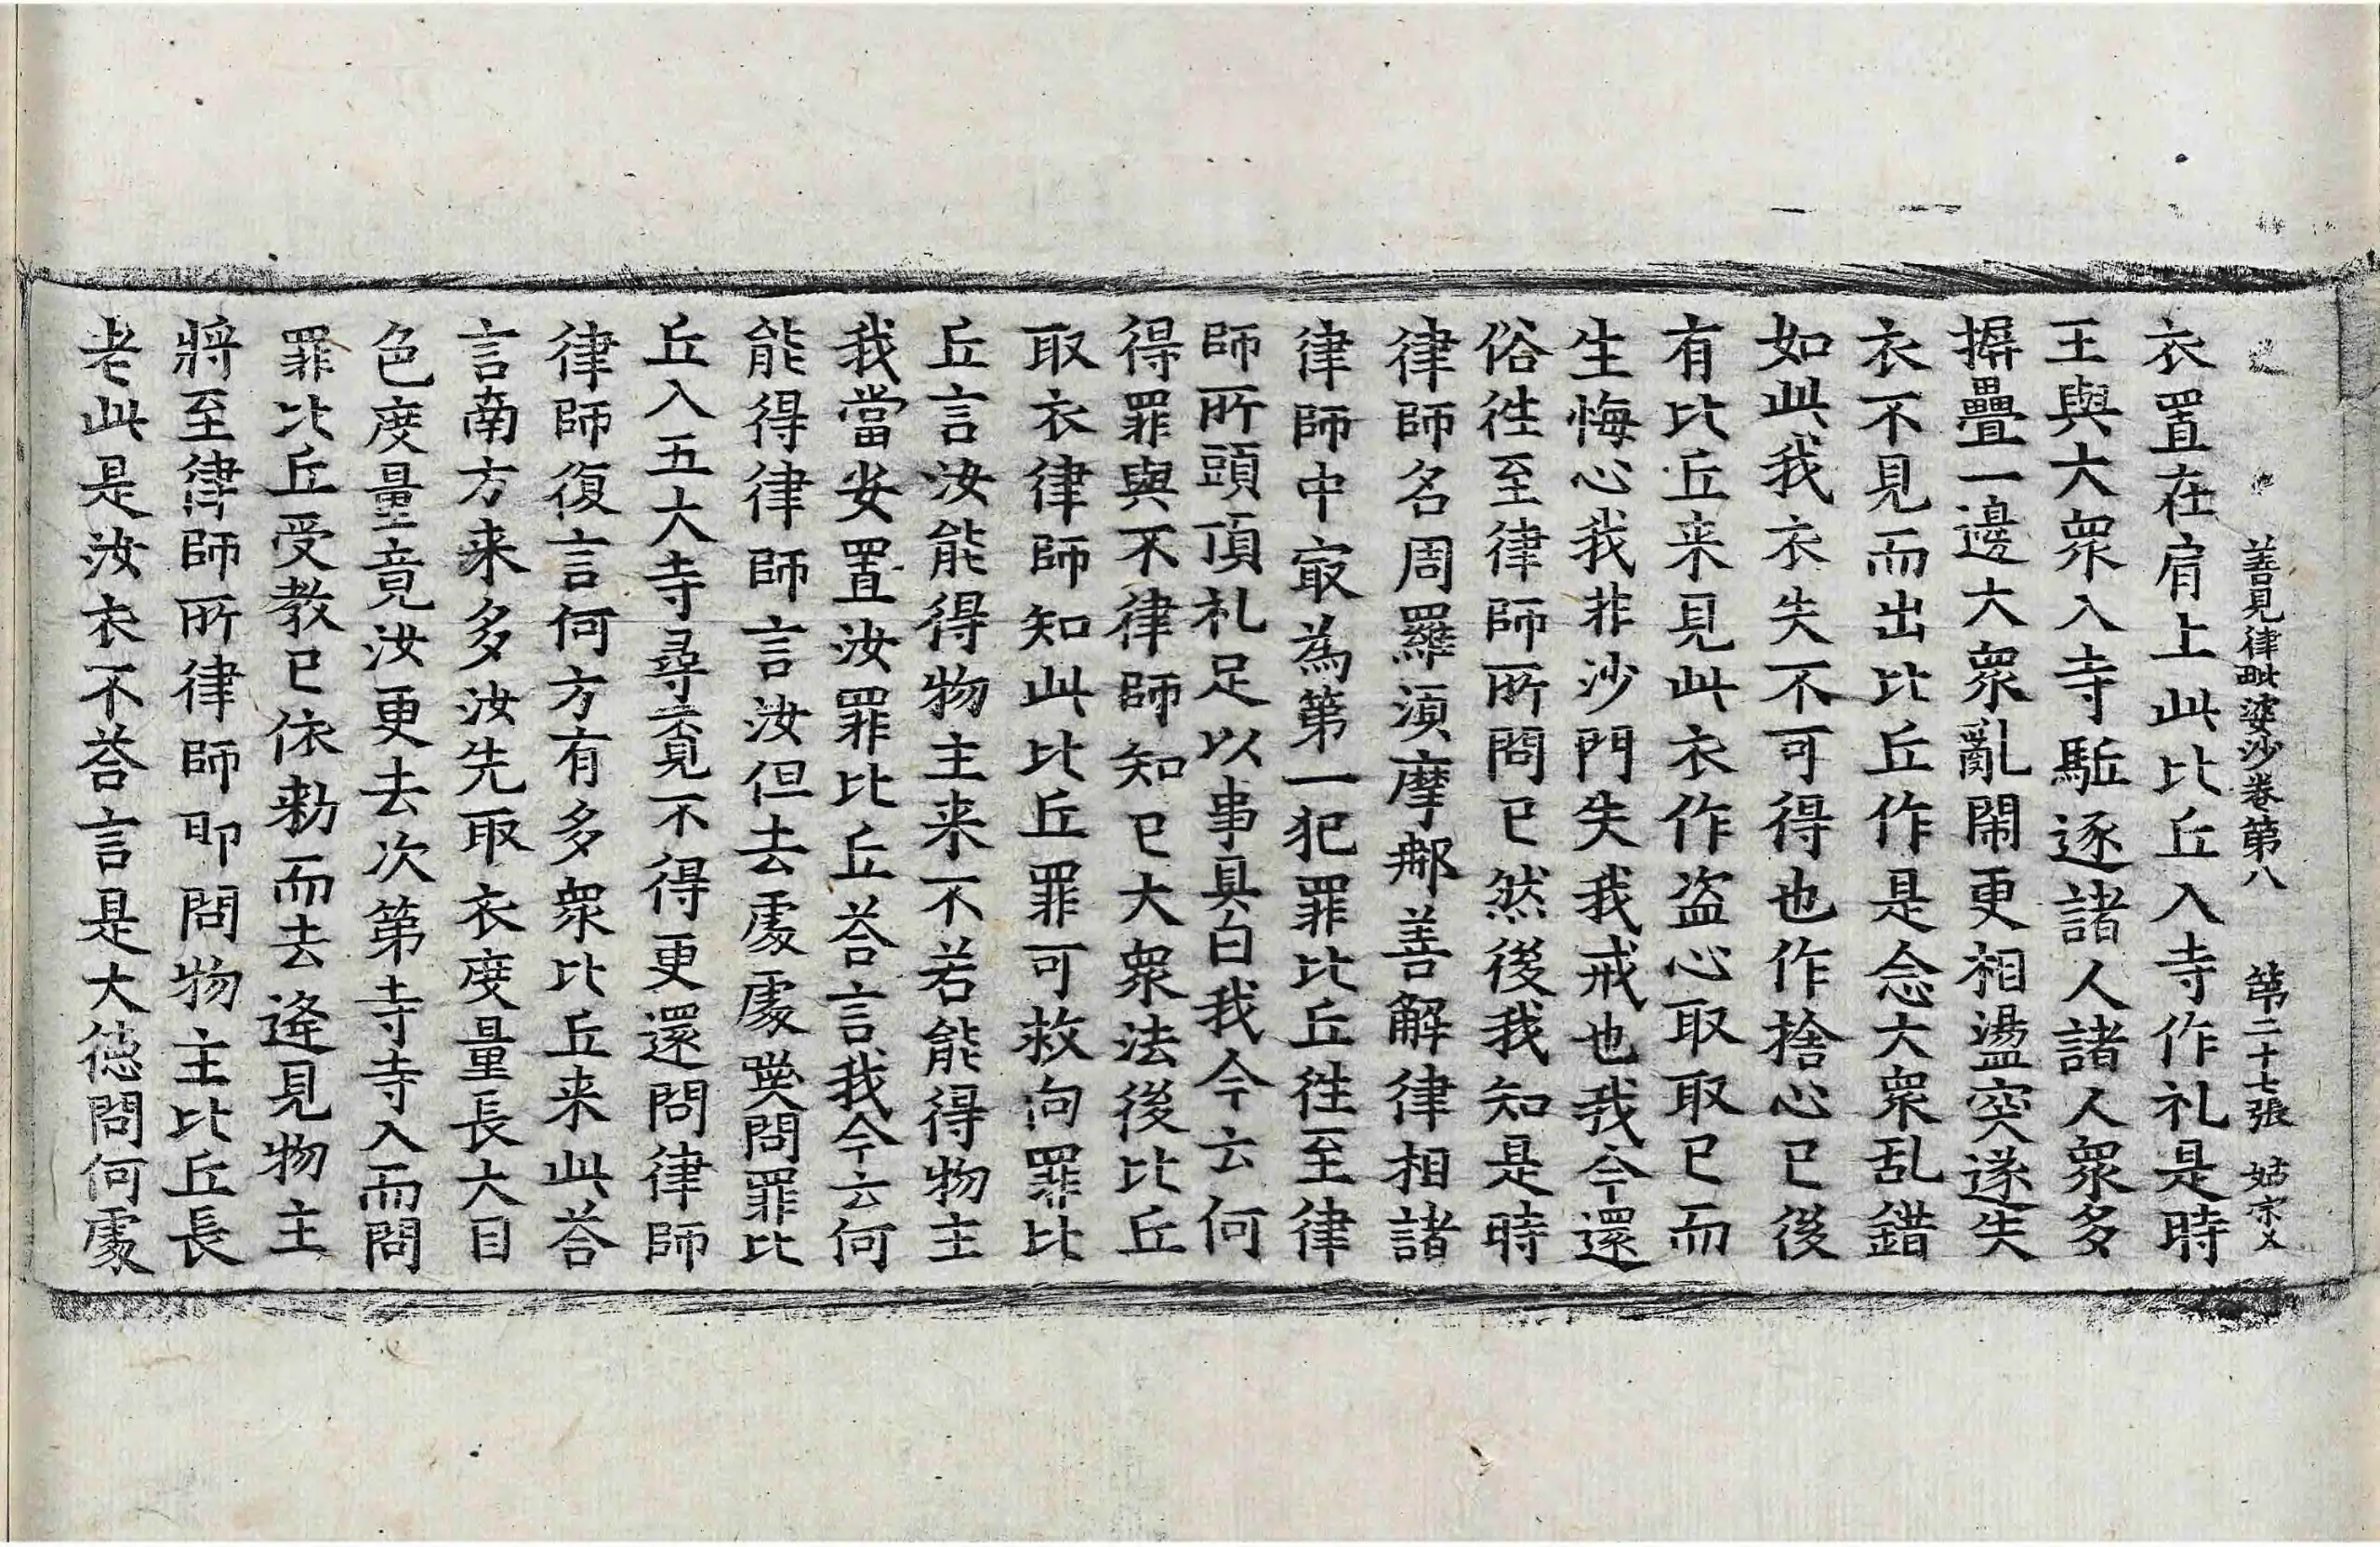 善見律毗婆沙卷第八 第二十七張 姑宗乂
衣置在肩上此比丘入寺作礼是時
王與大衆入寺駈逐諸人諸人衆多
摒疊一邊大衆亂鬧更相盪突遂失
衣不見而出比丘作是念大衆乱錯
如此我衣失不可得也作捨心已後
有比丘来見此衣作盗心取取已而
生悔心我非沙門失我戒也我今還
俗徃至律師所問已然後我知是時
律師名周羅湏摩那善解律相諸
律師中㝡為第一犯罪比丘徃至律
師所頭頂礼足以事具白我今云何
得罪與不律師知已大衆法後比丘
取衣律師知此比丘罪可救向罪比
丘言汝能得物主来不若能得物主
我當安置汝罪比丘荅言我今云何
能得律師言汝但去處處𠾑問罪比
丘入五大寺尋覓不得更還問律師
律師復言何方有多衆比丘来此荅
言南方来多汝先取衣度量長大目
色度量竟汝更去次第寺寺入而問
罪比丘受教已依勑而去逢見物主
將至律師所律師即問物主比丘長
老此是汝衣不荅言是大德問何處